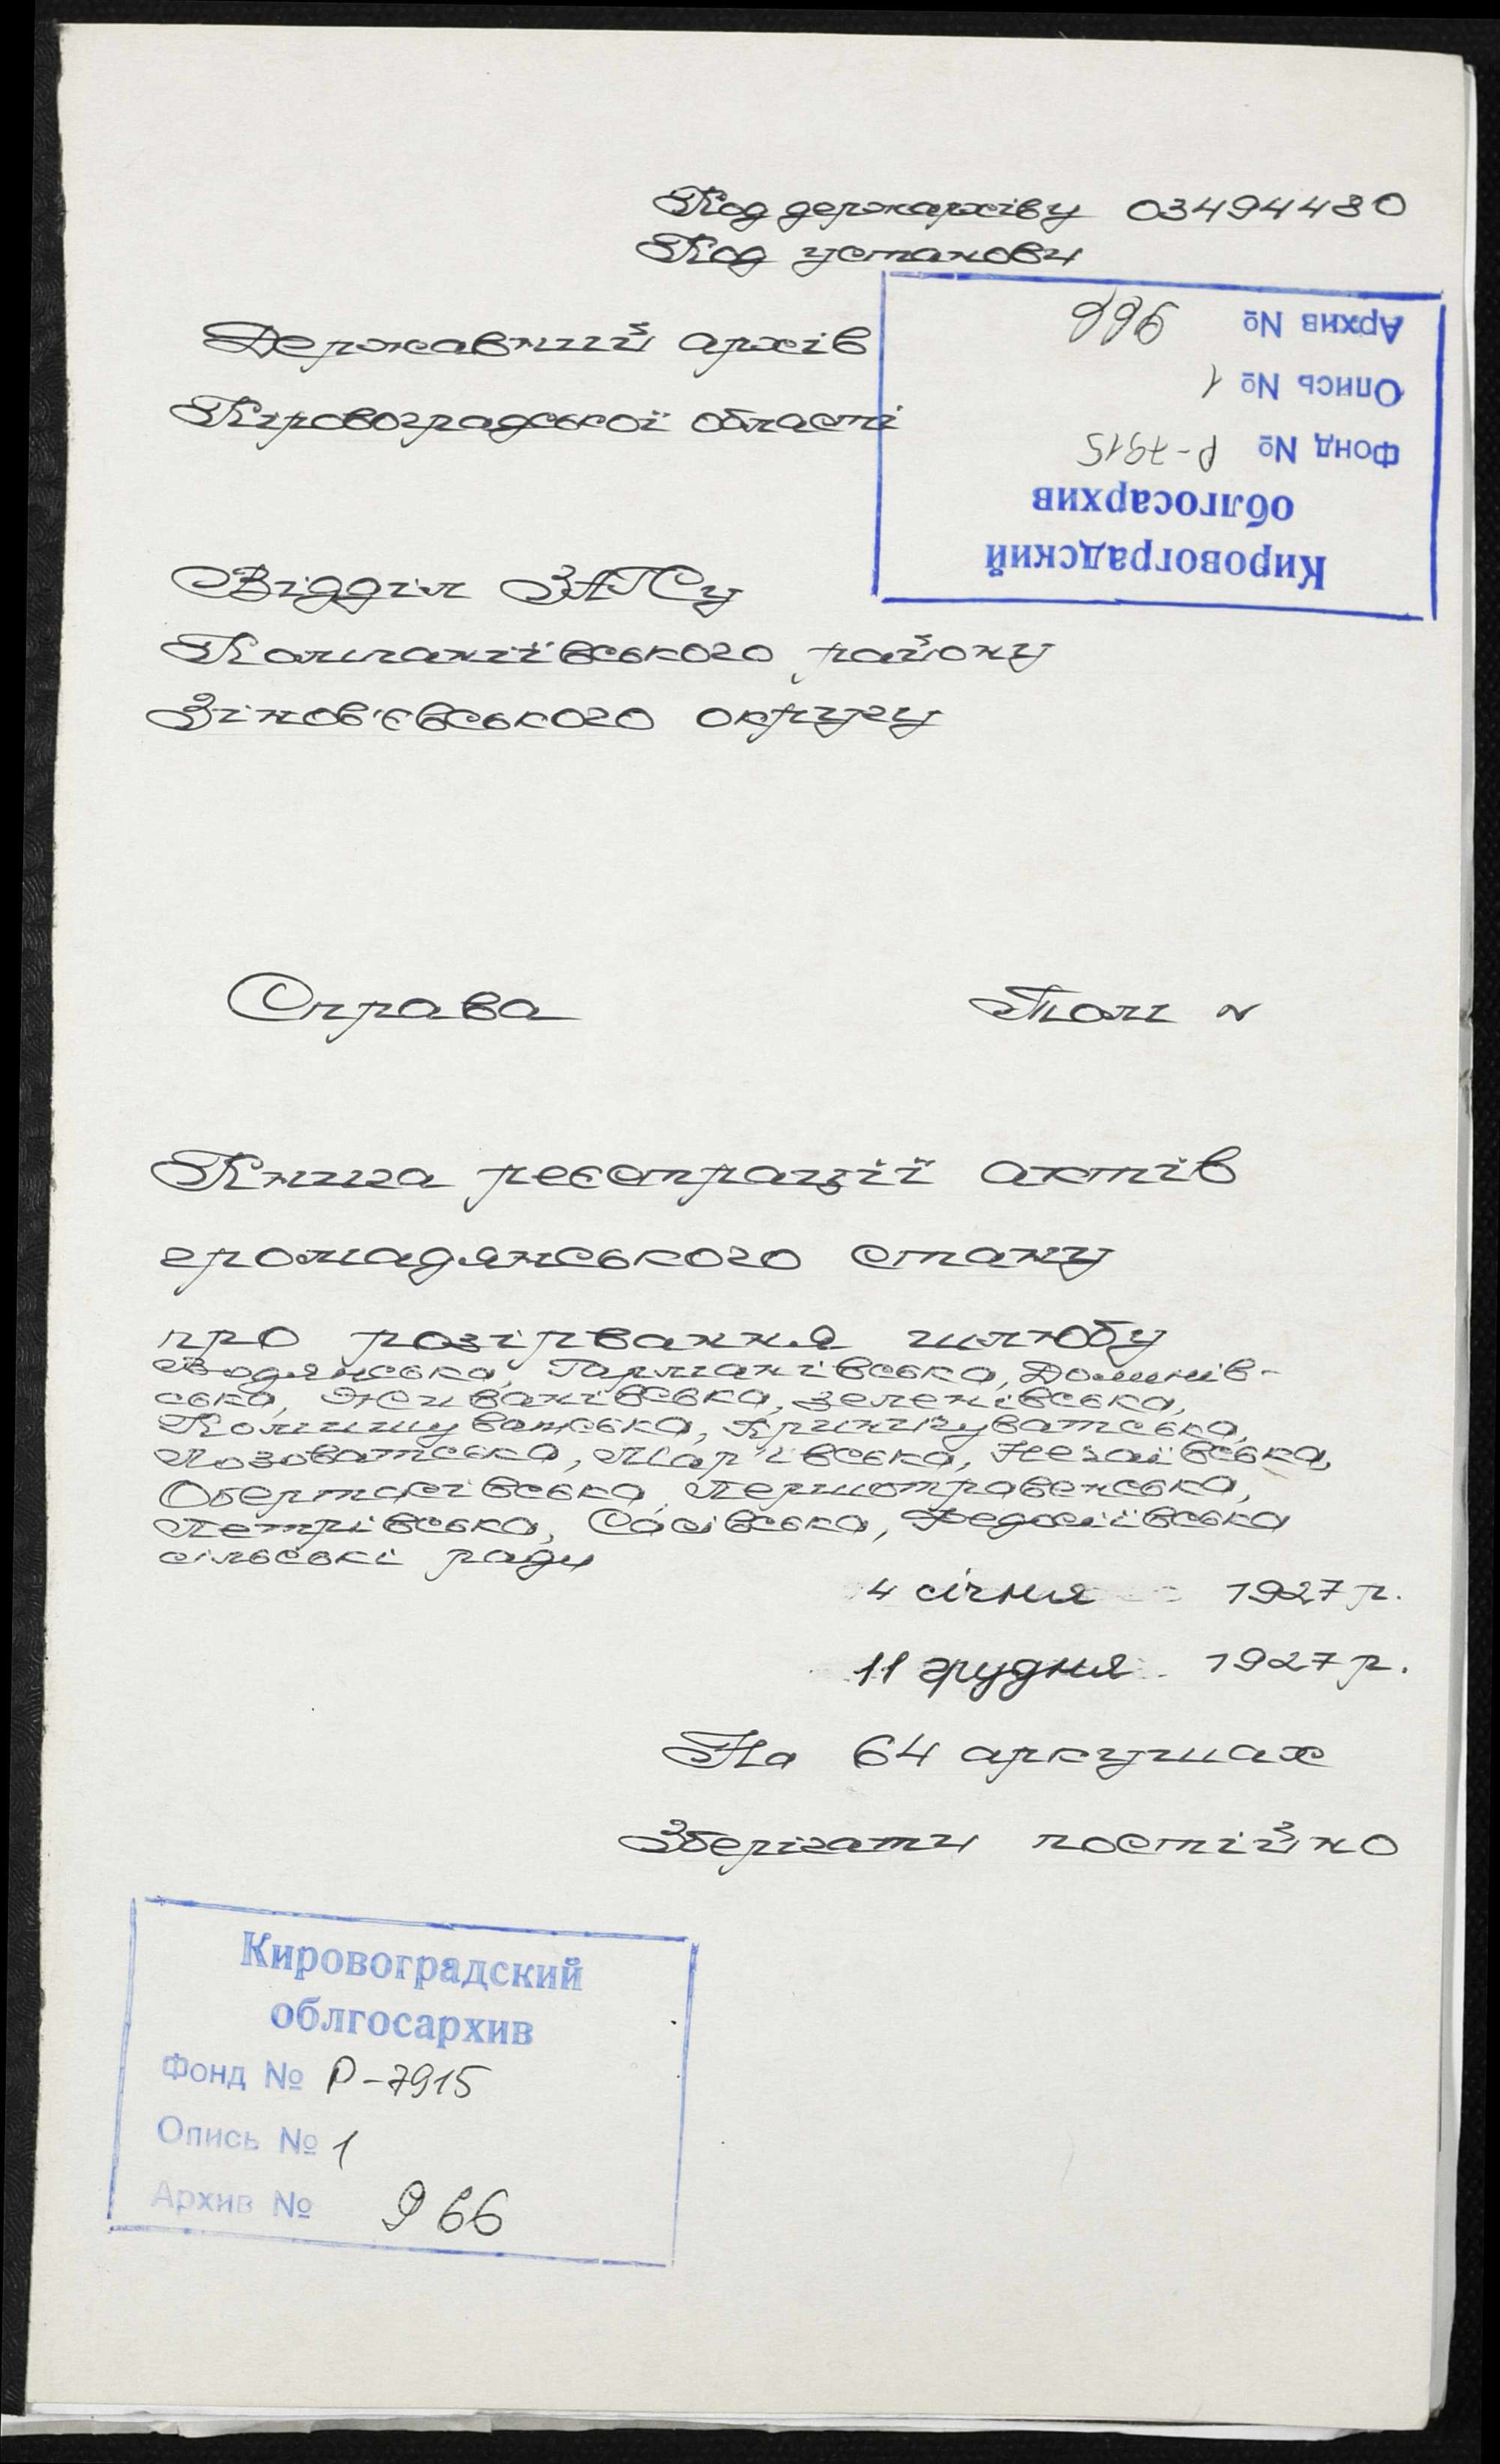 Код держархіву 03494480
Код установи
Архив № 966
Опись № 1
Фонд № Р-7915
облгосархив
Кировоградский
Державний архів
Кіровоградської області
Відділ ЗАГСу
Компаніївського району
Зінов'євського округу
Справа Том №
Книга реєстрації актів
громадянського стану
про розірвання шлюбу
Водянська, Гарманівська,
ська, Живанівська, Зеленівська,
Лозоватська, Мар'ївська, Нечаївська,
Першотравенська,
Петрівська, Сасівська,
сільські ради
4 січня 1927 р.
11 грудня 1927 р.
На 64 аркушах
Зберігати постійно
Кировоградский
облгосархив
Фонд № Р-7915
Опись № 1
Архив № 966